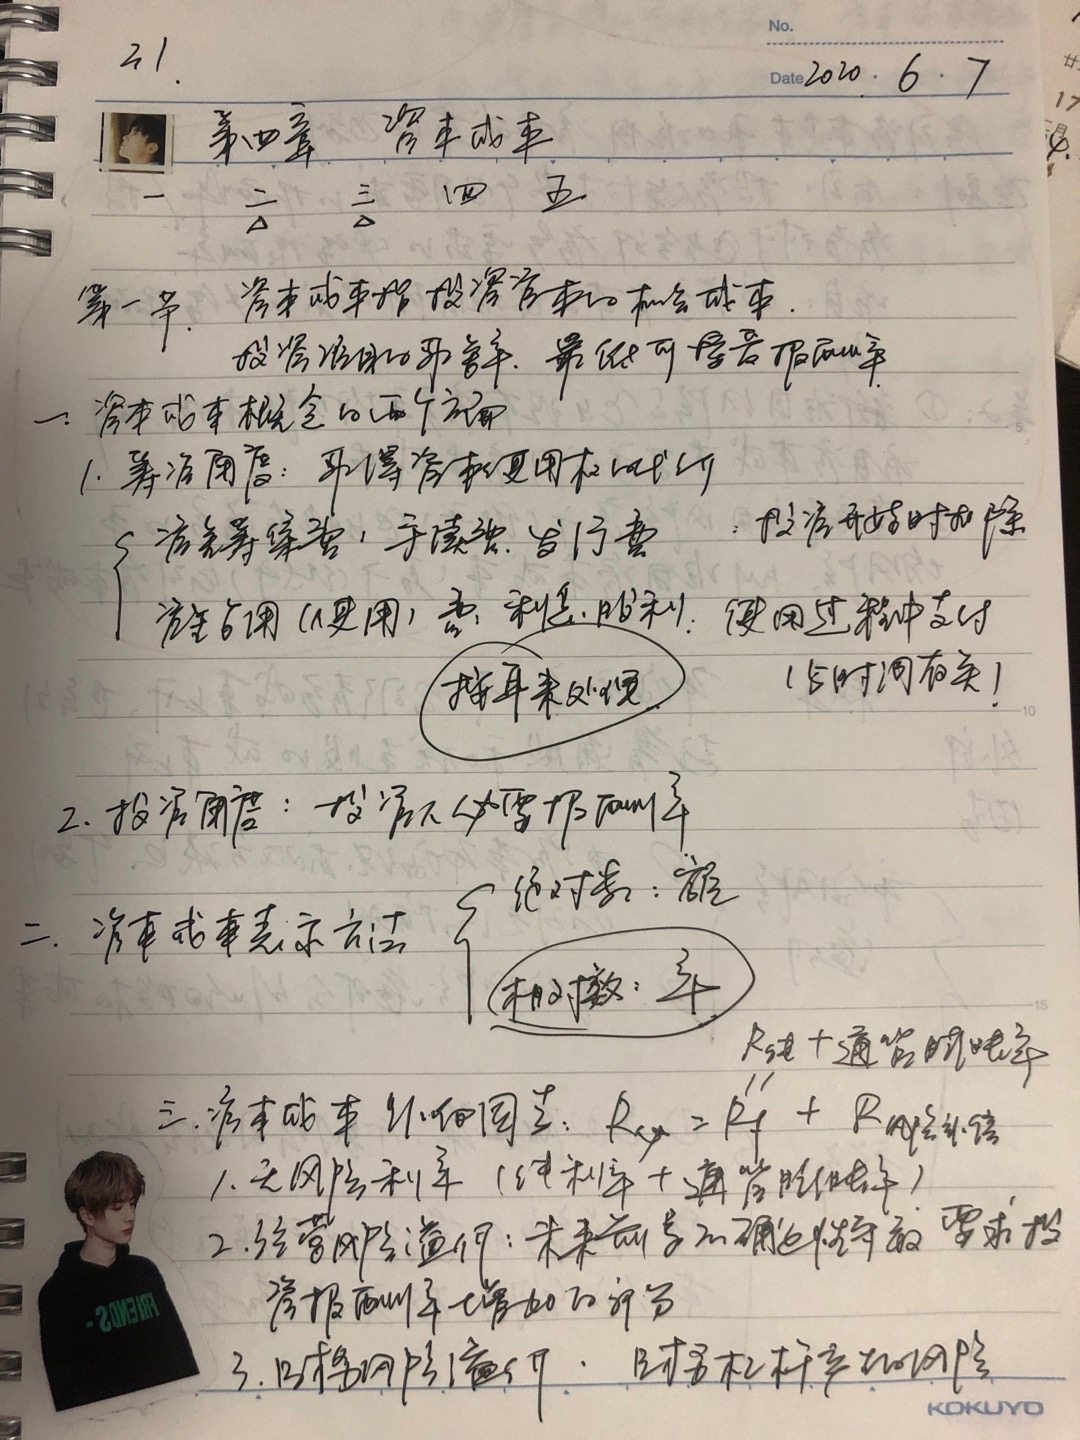 No.
21.
Date 2020 . 6 . 7
第四章 资本成本
一 二 三 四 五
第一节. 资本成本指投资资本的机会成本.
投资项目的取舍率. 最低可接受报酬率
一. 资本成本概念的两个方面
1. 筹资角度: 取得资本使用权的代价
资金筹集费, 手续费、发行费 : 投资开始时扣除
资金占用(使用)费: 利息.股利: 使用过程中支付
(与时间有关)
2. 投资角度: 投资人必要报酬率
绝对数: 额
二. 资本成本表示方法
相对数: 率
R纯 + 通货膨胀率
三. 资本成本影响因素: = Rf + R风险补偿
1. 无风险利率 (纯利率 + 通货膨胀率)
2. 经营风险溢价: 未来前景不确定性导致 要求投
资报酬率增加的部分
3. 财务风险溢价. 财务杠杆率高的风险
FRIENDS
5
10
15
KOKUYO